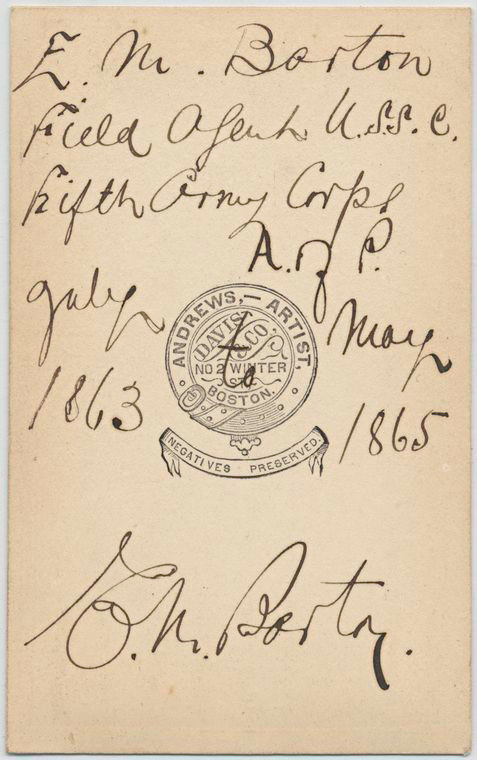 E. M. Barton
Field Agent U.S.S.C.
Fifth Army Corps
A. of P.
July
to
May
1863
1865
ANDREWS,— ARTIST,
DAVIS & CO.'S
NO 2 WINTER
ST.
BOSTON.
NEGATIVES PRESERVED.
E. M. Barton.